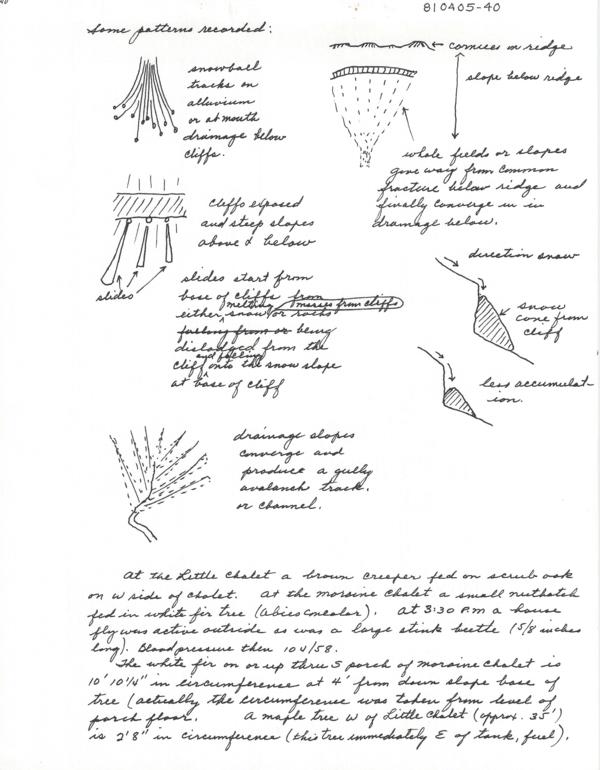 810405-40
Some patterns recorded:
snowball
tracks on
alluvium
or at mouth
drainage below
cliffs.
← cornices on ridge
slope below ridge
whole fields or slopes
give way from common
fracture below ridge and
finally converge in in
drainage below.
cliffs exposed
and steep slopes
above & below
slides
slides start from
base of cliffs from
melting masses from cliffs
either snow or rocks
falling from or being
dislodged from the
and falling
cliff onto the snow slope
at base of cliff
direction snow
snow
cone from
cliff
less accumulat-
ion.
drainage slopes
converge and
produce a gully
avalanch track.
or channel.
At the Little Chalet a brown creeper fed on scrub oak
on W side of chalet. At the moraine chalet a small nuthatch
fed in white fir tree (Abies concolor). At 3:30 P.M a house
fly was active outside as was a large stink beetle (5/8 inches
long). Blood pressure then 104/58.
The white fir on or up thru S porch of moraine chalet is
10' 10 1/4" in circumference at 4' from down slope base of
tree (actually the circumference was taken from level of
porch floor. A maple tree W of Little Chalet (approx. 35')
is 2'8" in circumference (this tree immediately E of tank, fuel).